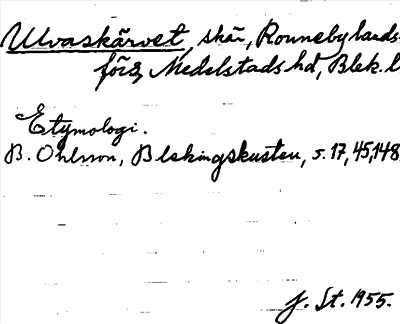 Ulvaskärvet, skär, Ronneby lands-
förs, Medelstads hd, Blek. l
Etymologi.
B. Ohlsson, Blekingskusten, s. 17, 45, 148
J. St. 1955.